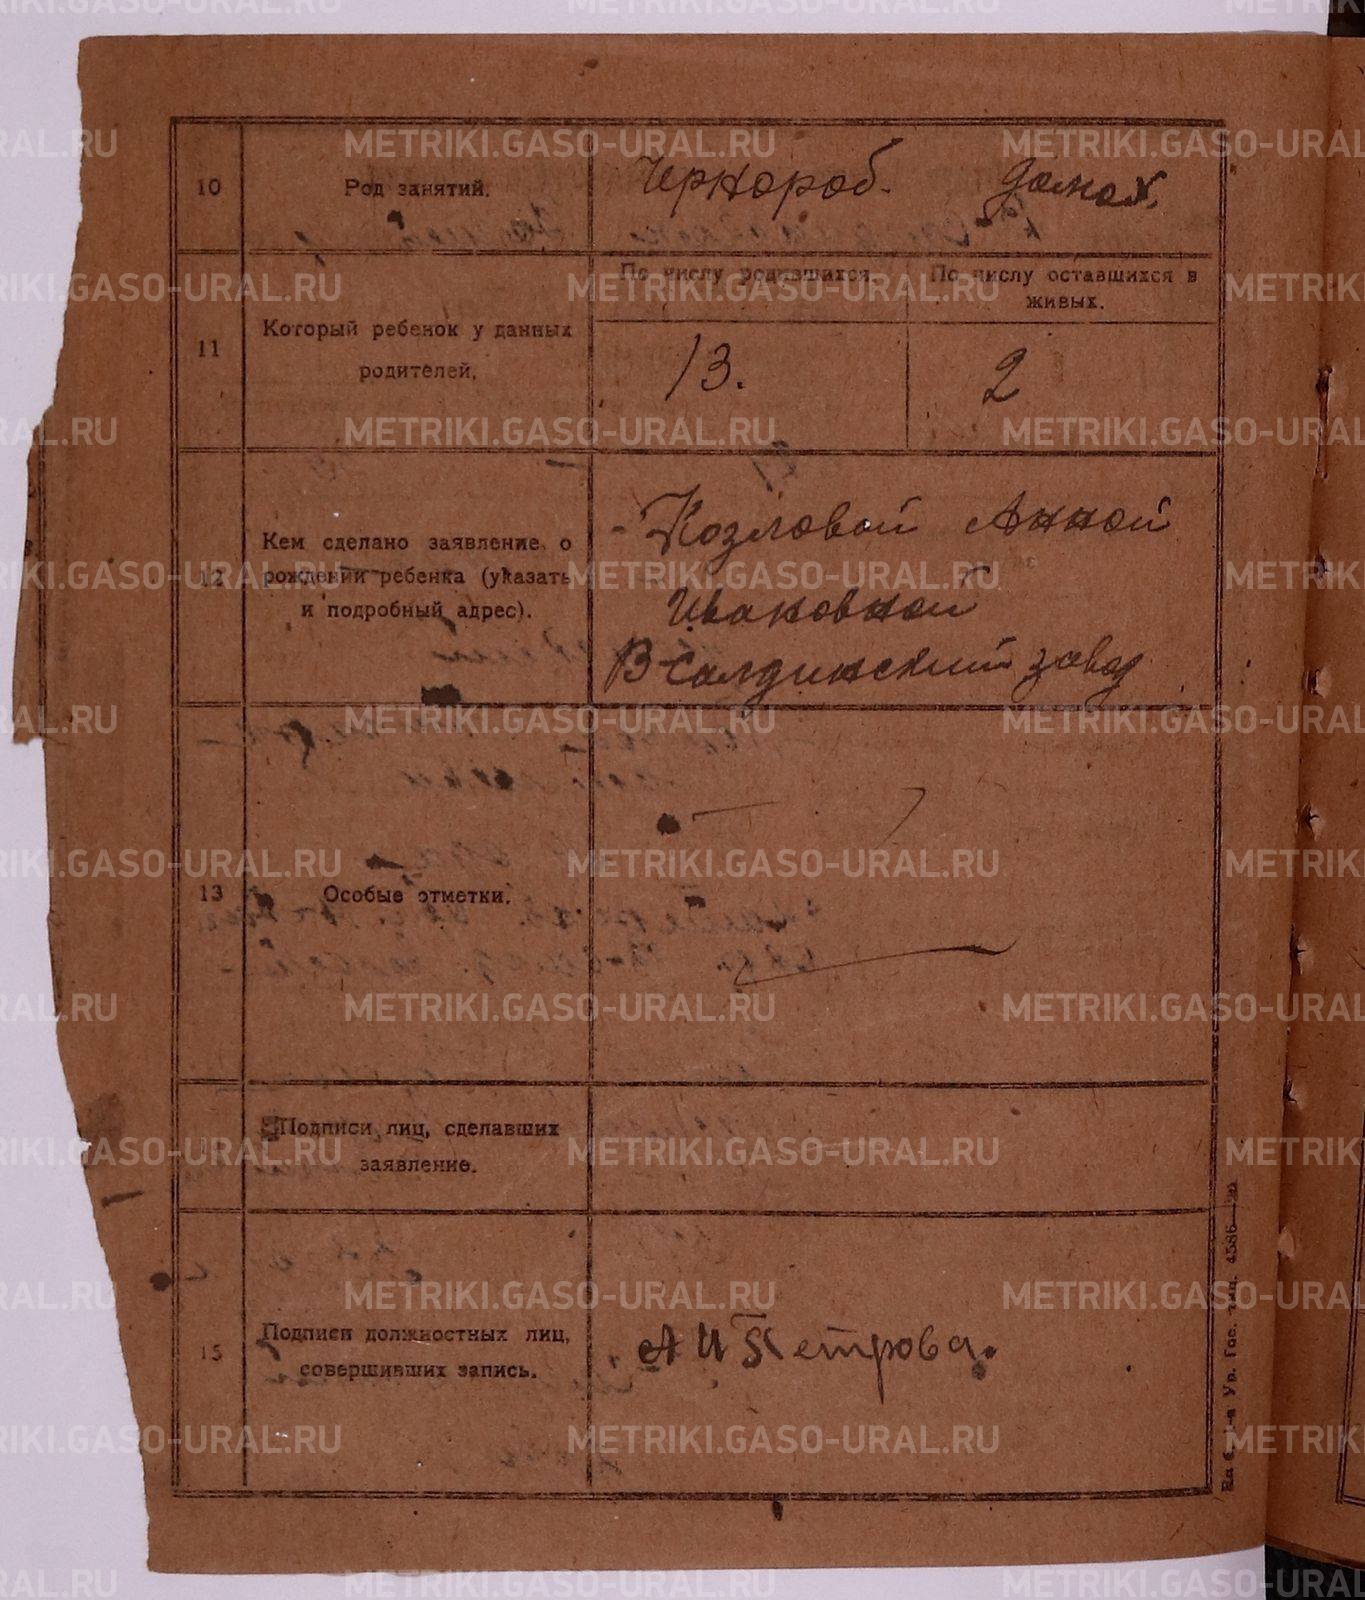 10 Род занятий. Чернороб. домох.
11 Который ребенок у данных
родителей.
По числу родившихся. По числу оставшихся в
живых.
13. 2
12 Кем сделано заявление о
рождении ребенка (указать
и подробный адрес).
Козловой Анной
Ивановной
В-Салдинский завод
13 Особые отметки.
Подписи лиц, сделавших
заявление.
15 Подписи должностных лиц,
совершивших запись.
А И Петрова.
Ур. Гос. 4586
METRIKI.GASO-URAL.RU